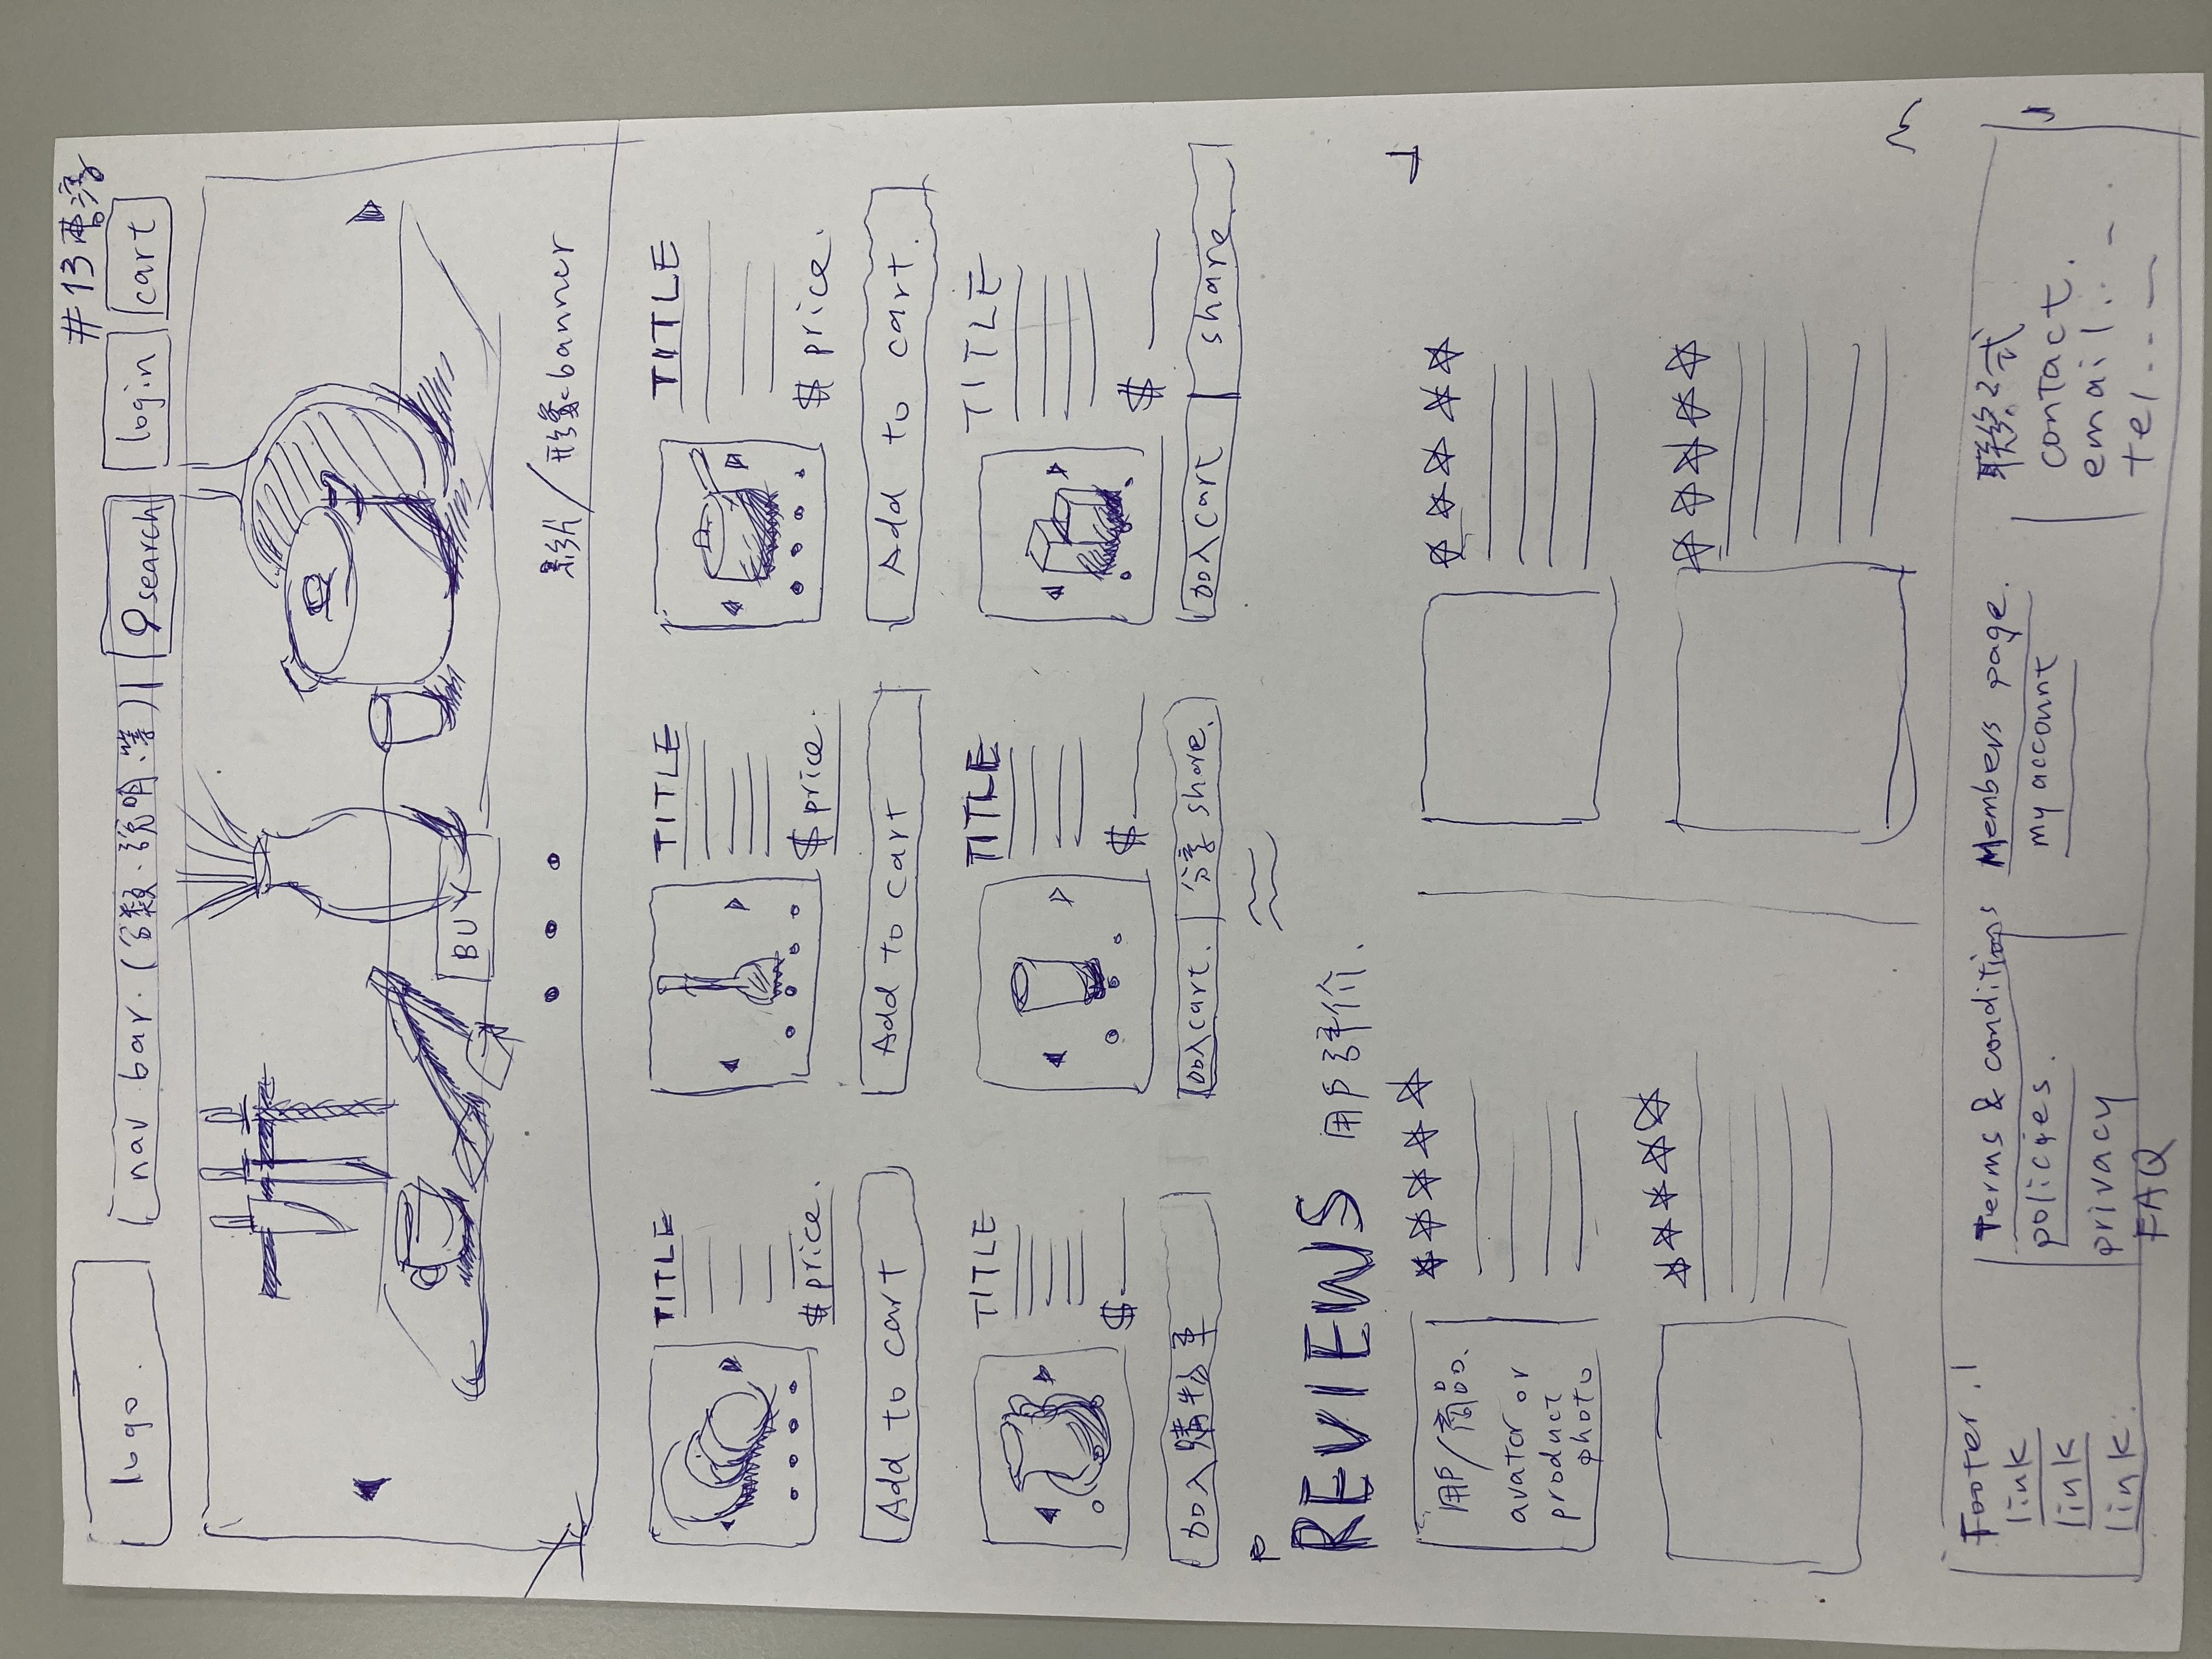 #13 曹濤
logo.
nav bar. (分類.說明.等)
search
login
cart
BUY
影片/形象banner
TITLE
$ price.
Add to cart
TITLE
$ price.
Add to cart
TITLE
$ price.
Add to cart.
TITLE
$
加入購物車
TITLE
$
加入cart.
分享 share.
TITLE
$
加入cart
share
REVIEWS 用戶評价.
用戶/商品.
avator or
product
photo
Footer.
link
link
link.
Terms & conditions
policies.
privacy
FAQ
Members page.
my account
contact.
email...
tel...